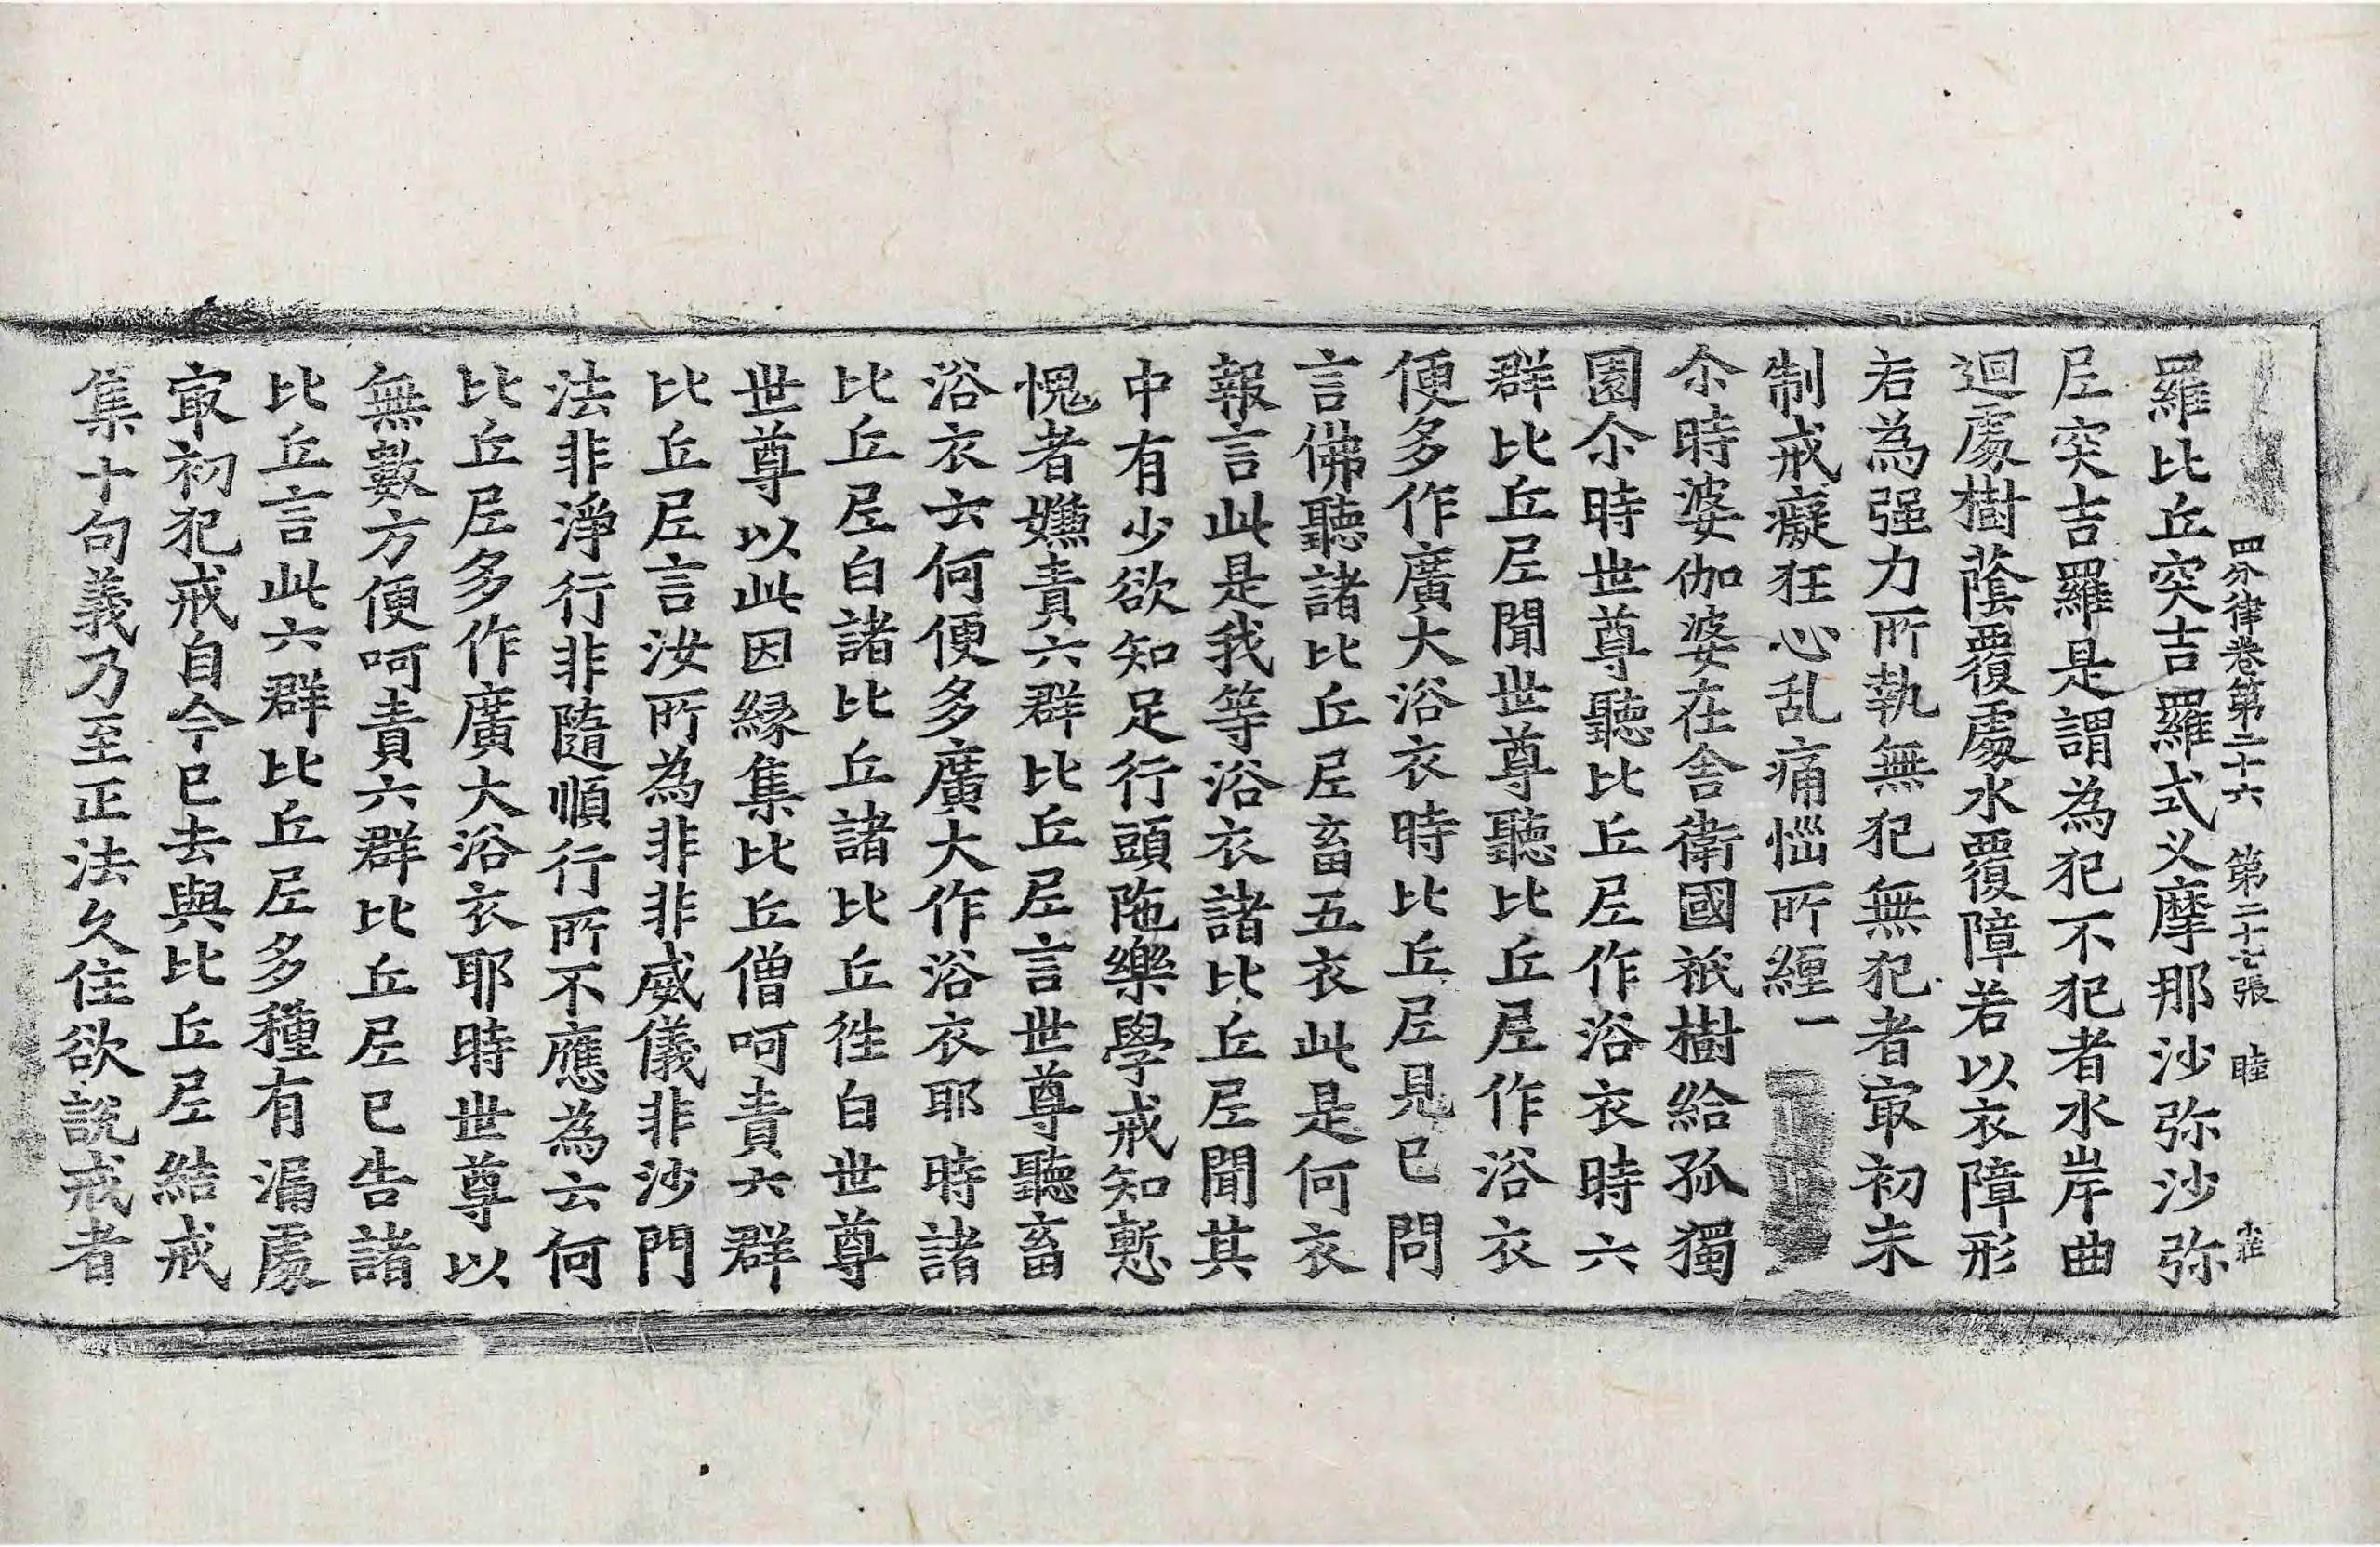 四分律卷第二十六 第二十七張 睦
羅比丘突吉羅式叉摩那沙弥沙弥
尼突吉羅是謂為犯不犯者水岸曲
迴處樹蔭覆處水覆障若以衣障形
若為强力所執無犯無犯者冣初未
制戒癡狂心乱痛惱所纏一
尒時婆伽婆在舍衛國祇樹給孤獨
園尒時世尊聽比丘尼作浴衣時六
群比丘尼聞世尊聽比丘尼作浴衣
便多作廣大浴衣時比丘尼見已問
言佛聽諸比丘尼畜五衣此是何衣
報言此是我等浴衣諸比丘尼聞其
中有少欲知足行頭陁樂學戒知慙
愧者嫌責六群比丘尼言世尊聽畜
浴衣云何便多廣大作浴衣耶時諸
比丘尼白諸比丘諸比丘徃白世尊
世尊以此因緣集比丘僧呵責六群
比丘尼言汝所為非非威儀非沙門
法非淨行非隨順行所不應為云何
比丘尼多作廣大浴衣耶時世尊以
無數方便呵責六群比丘尼已告諸
比丘言此六群比丘尼多種有漏處
冣初犯戒自今已去與比丘尼結戒
集十句義乃至正法久住欲說戒者